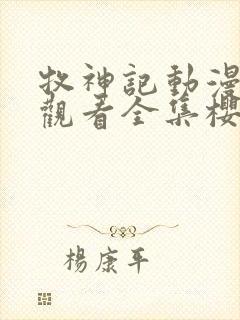 牧神記動漫
觀看全集櫻
楊康平